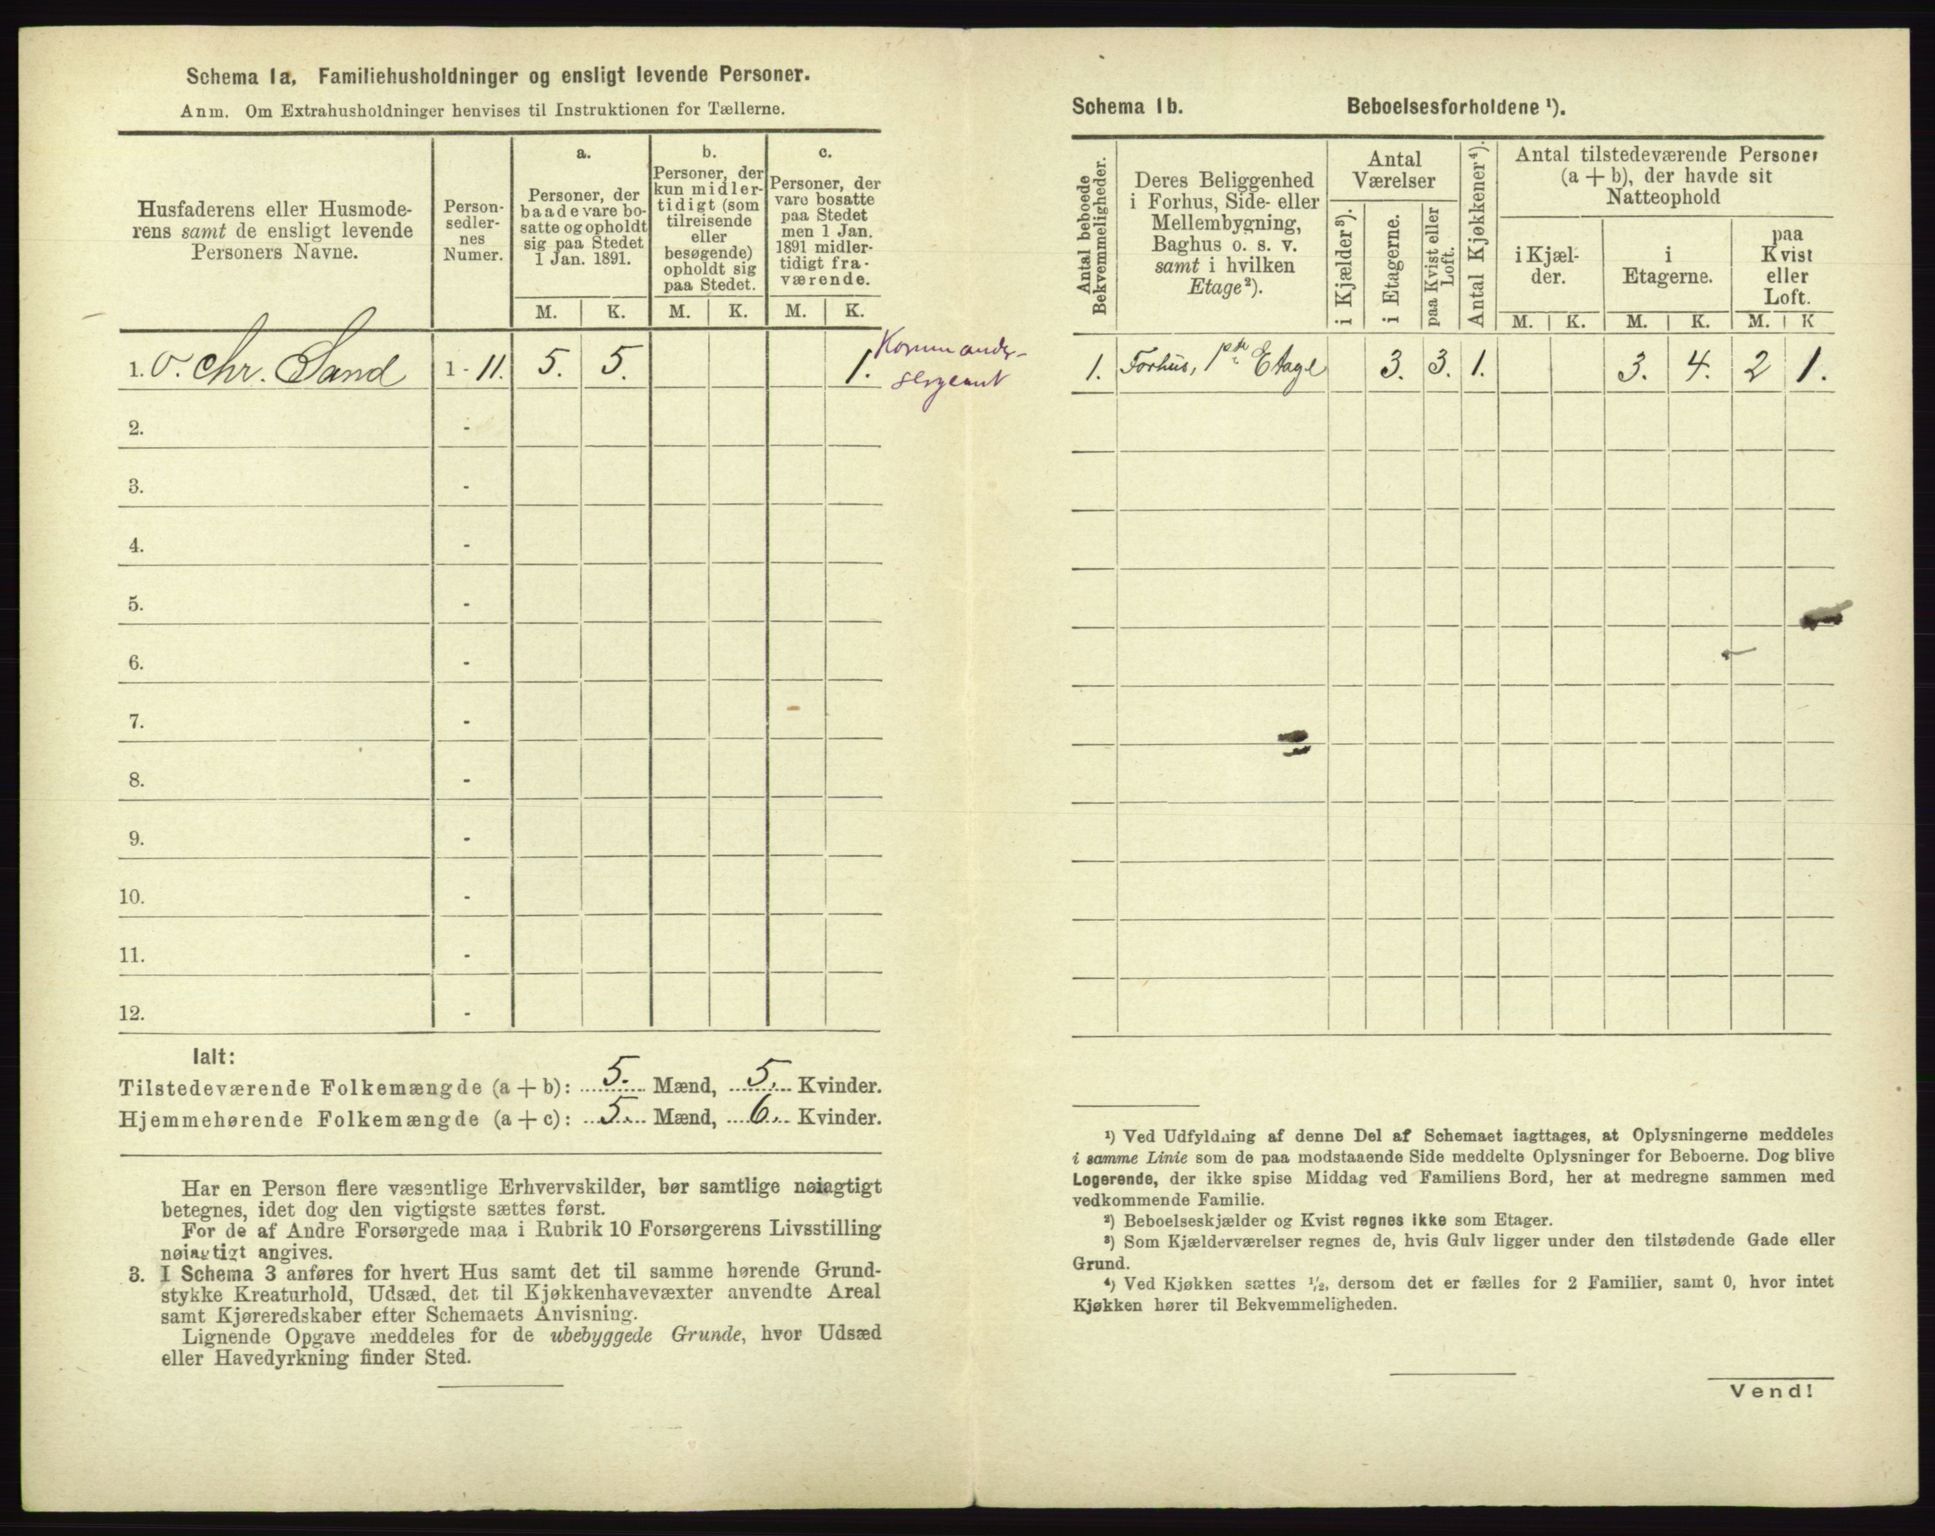 Schema 1a. Familiehusholdninger og ensligt levende Personer.
Anm. Om Extrahusholdninger henvises til Instruktionen for Tællerne.
Husfaderens eller Husmode-
rens samt de ensligt levende
Personers Navne.
Person-
sedler-
nes
Numer.
a.
Personer, der
baade vare bo-
satte og opholdt
sig paa Stedet
1 Jan. 1891.
b.
Personer, der
kun midler-
tidigt (som
tilreisende
eller
besøgende)
opholdt sig
paa Stedet.
c.
Personer, der
vare bosatte
paa Stedet
men 1 Jan.
1891 midler-
tidigt fra-
værende.
M. K. M. K. M. K.
1. O. Chr. Sand 1 - 11. 5. 5. 1. Kommander-
sergeant
2. -
3. -
4. -
5. -
6. -
7. -
8. -
9. -
10. -
11. -
12. -
Ialt:
Tilstedeværende Folkemængde (a + b): 5. Mænd, 5. Kvinder.
Hjemmehørende Folkemængde (a + c): 5. Mænd, 6. Kvinder.
Har en Person flere væsentlige Erhvervskilder, bør samtlige nøiagtigt
betegnes, idet dog den vigtigste sættes først.
For de af Andre Forsørgede maa i Rubrik 10 Forsørgerens Livsstilling
nøiagtigt angives.
3. I Schema 3 anføres for hvert Hus samt det til samme hørende Grund-
stykke Kreaturhold, Udsæd, det til Kjøkkenhavevæxter anvendte Areal
samt Kjøreredskaber efter Schemaets Anvisning.
Lignende Opgave meddeles for de ubebyggede Grunde, hvor Udsæd
eller Havedyrkning finder Sted.
Schema 1b. Beboelsesforholdene ¹).
Antal beboede
Bekvemmeligheder.
Deres Beliggenhed
i Forhus, Side- eller
Mellembygning,
Baghus o. s. v.
samt i hvilken
Etage²).
Antal
Værelser
i Kjælder³).
i Etagerne.
paa Kvist eller
Loft.
Antal Kjøkkener⁴).
Antal tilstedeværende Personer
(a + b), der havde sit
Natteophold
i Kjæl-
der.
i
Etagerne.
paa
Kvist
eller
Loft.
M. K. M. K. M. K
1. Forhus, 1ste Etage 3. 3. 1. 3. 4. 2 1.
¹) Ved Udfyldning af denne Del af Schemaet iagttages, at Oplysningerne meddeles
i samme Linie som de paa modstaaende Side meddelte Oplysninger for Beboerne. Dog blive
Logerende, der ikke spise Middag ved Familiens Bord, her at medregne sammen med
vedkommende Familie.
²) Beboelseskjælder og Kvist regnes ikke som Etager.
³) Som Kjælderværelser regnes de, hvis Gulv ligger under den tilstødende Gade eller
Grund.
⁴) Ved Kjøkken sættes ½, dersom det er fælles for 2 Familier, samt 0, hvor intet
Kjøkken hører til Bekvemmeligheden.
Vend!